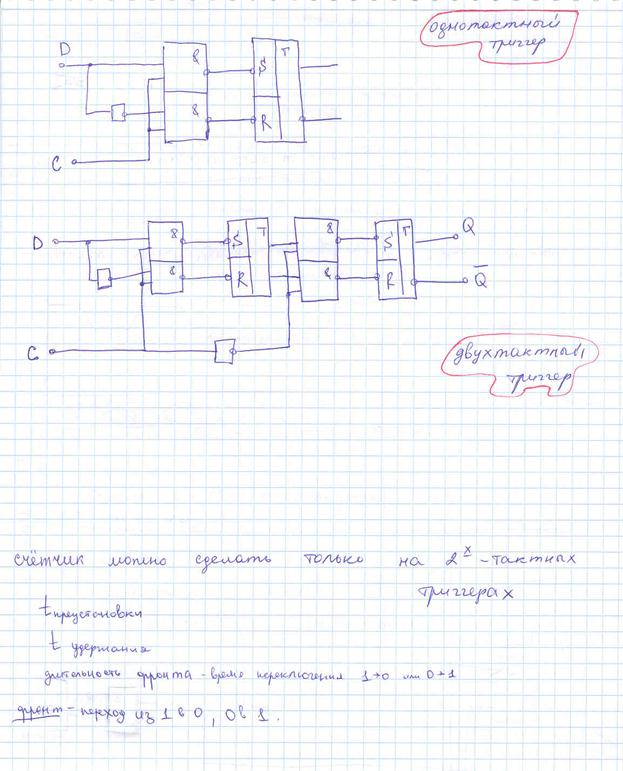 однотактный
триггер
D
&
&
S T
R
C
D
&
&
S T
R
&
&
S T
R
Q
Q̅
C
двухтактный
триггер
счётчик можно сделать только на 2ˣ-тактных
триггерах
t предустановки
t удержания
длительность фронта - время переключения 1→0 или 0→1
фронт - переход из 1 в 0, 0 в 1.